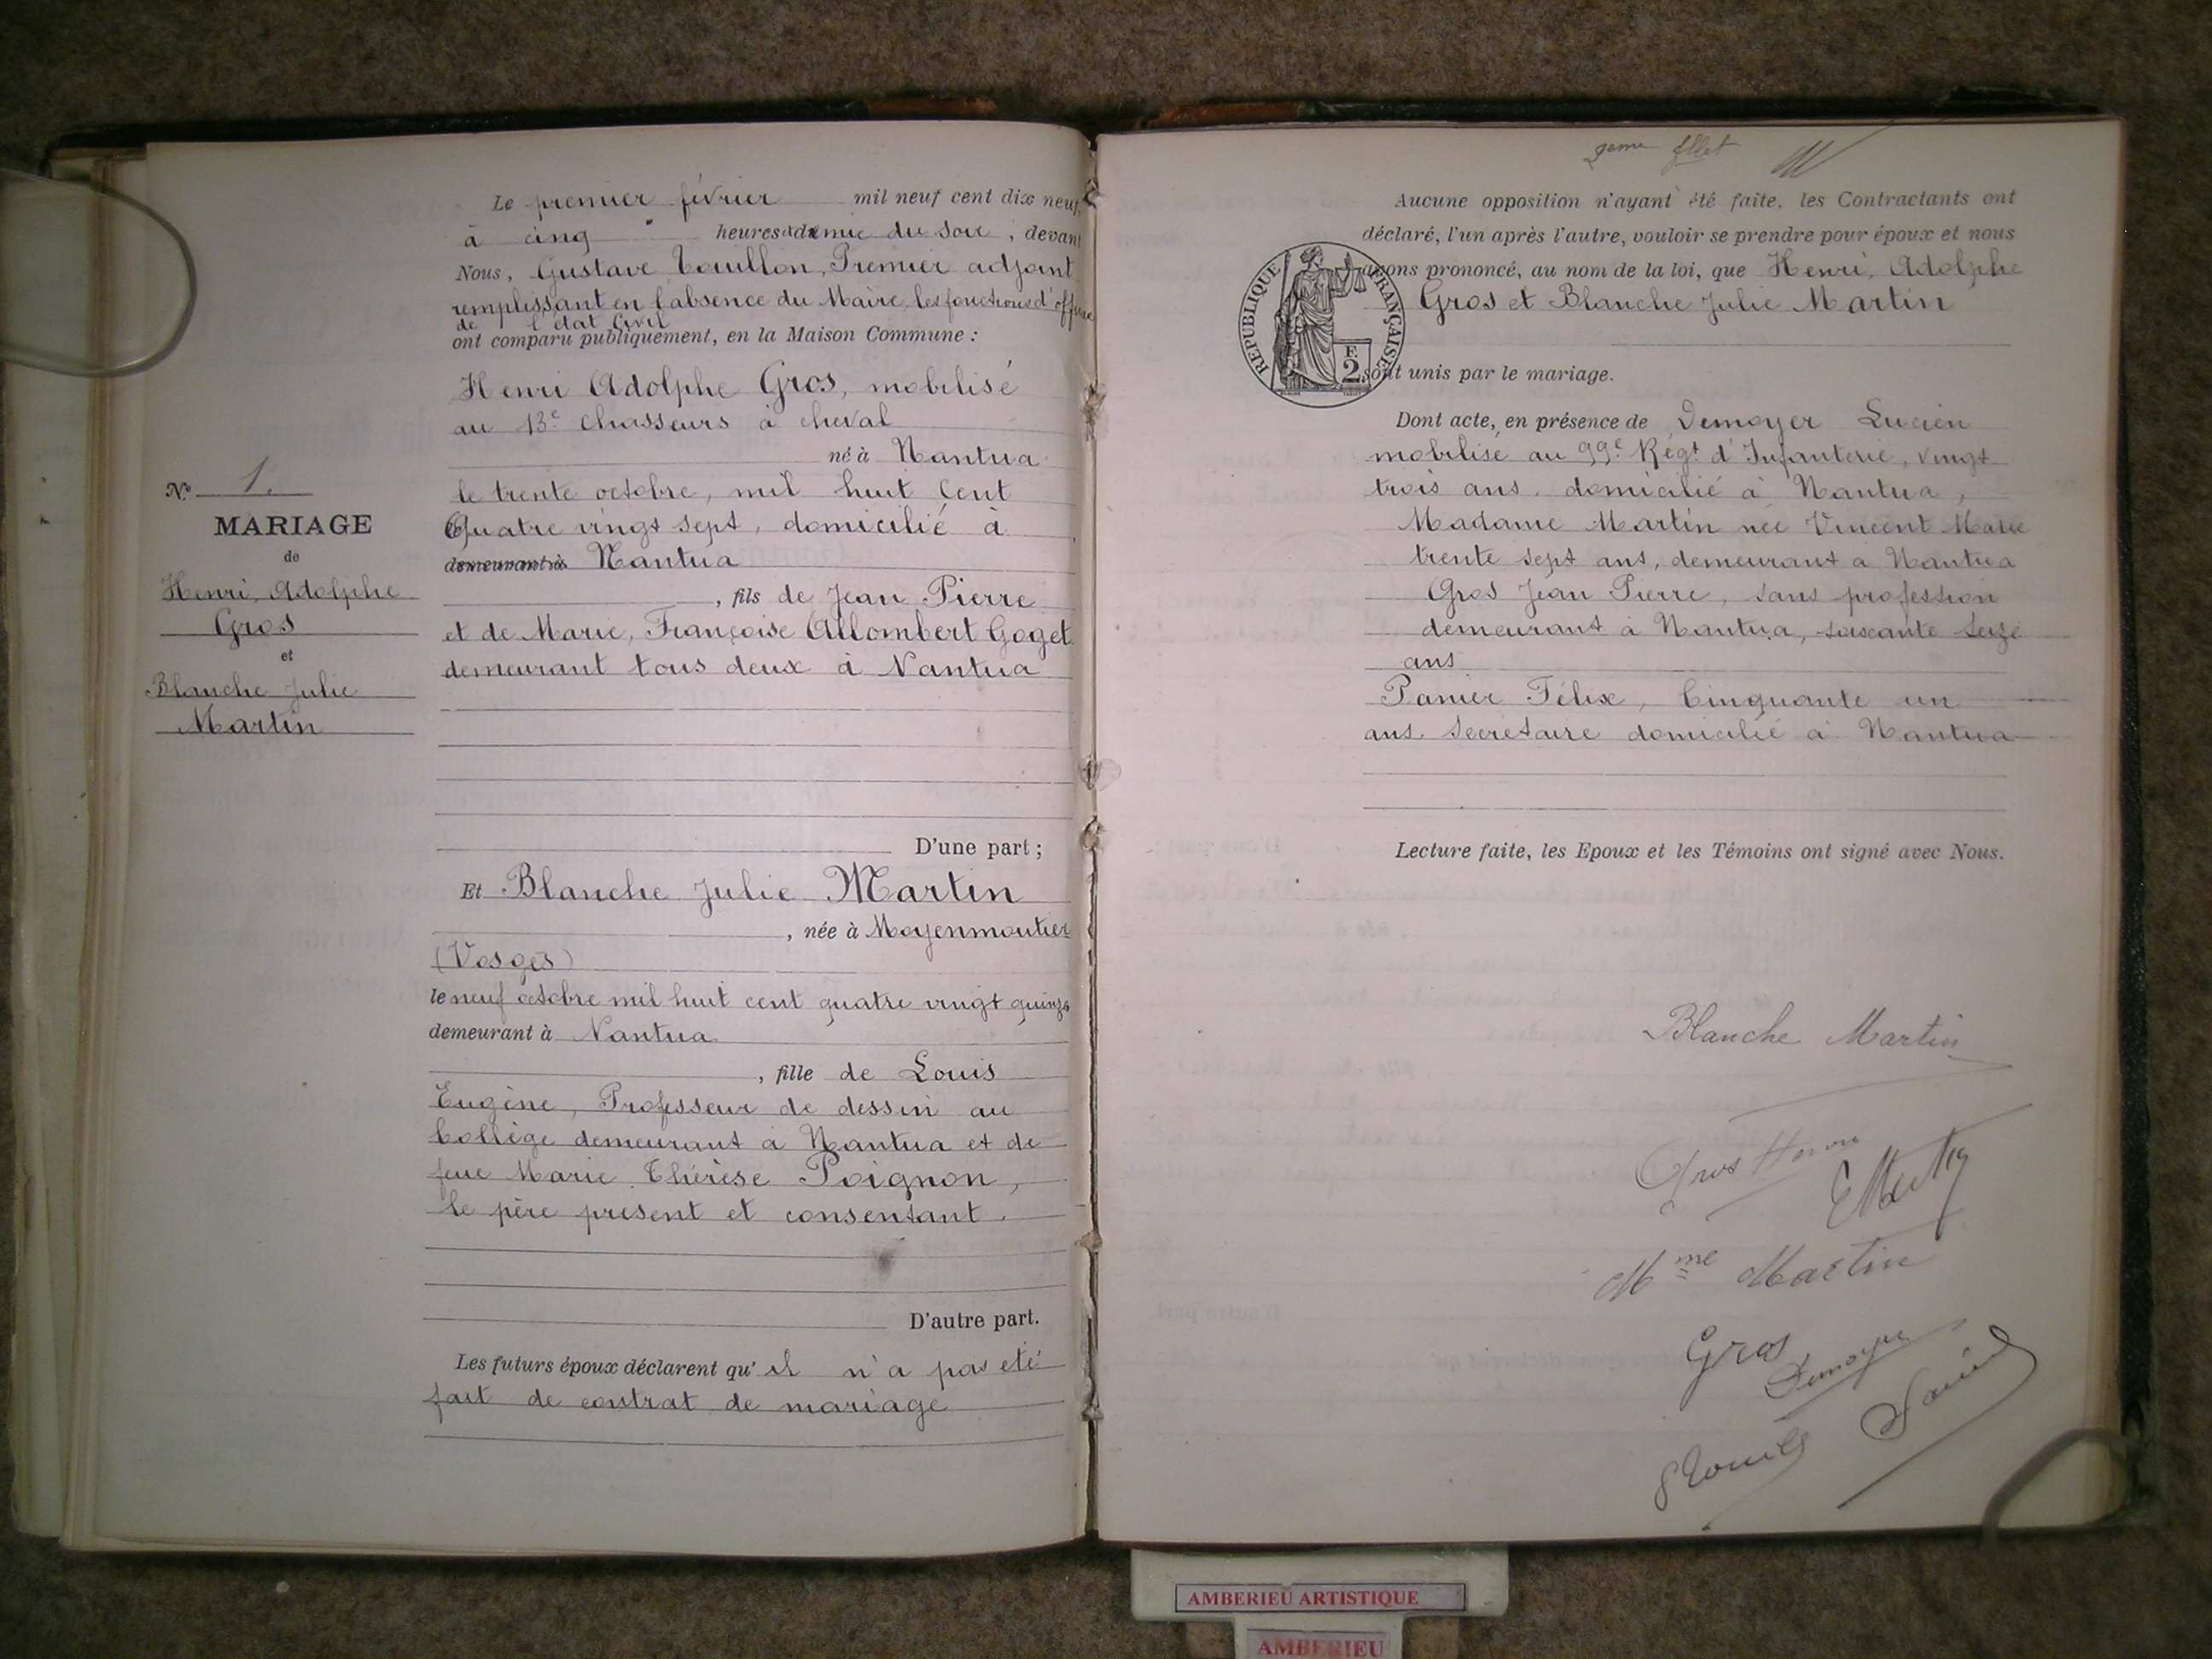 Le premier février mil neuf cent dix neuf,
à cinq heures et demie du soir, devant
Nous, Gustave Touillon, Premier adjoint
remplissant en l'absence du Maire les fonctions d'officier
de l'état Civil
ont comparu publiquement, en la Maison Commune :
Henri Adolphe Gros, mobilisé
au 13e Chasseurs à cheval
né à Nantua
le trente octobre, mil huit Cent
Quatre vingt sept, domicilié à
demeurant à Nantua
, fils de Jean Pierre
et de Marie, Françoise Allombert Goget
demeurant tous deux à Nantua
D'une part ;
Et Blanche Julie Martin
, née à Moyenmoutier
(Vosges)
le neuf octobre mil huit cent quatre vingt quinze
demeurant à Nantua
, fille de Louis
Eugène, Professeur de dessin au
Collège demeurant à Nantua et de
feue Marie Thérèse Poignon,
le père présent et consentant.
D'autre part.
Les futurs époux déclarent qu'il n'a pas été
fait de contrat de mariage
No 1.
MARIAGE
de
Henri, Adolphe
Gros
et
Blanche Julie
Martin
2eme fllet
Aucune opposition n'ayant été faite, les Contractants ont
déclaré, l'un après l'autre, vouloir se prendre pour époux et nous
avons prononcé, au nom de la loi, que Henri, Adolphe
Gros et Blanche Julie Martin
sont unis par le mariage.
REPUBLIQUE FRANÇAISE
F.
2
Dont acte, en présence de Demoyer Lucien
mobilisé au 99e Régt d'Infanterie, vingt
trois ans, domicilié à Nantua,
Madame Martin née Vincent Marie
trente sept ans, demeurant a Nantua
Gros Jean Pierre, sans profession
demeurant à Nantua, soixante seize
ans
Panier Félix, Cinquante un
ans. Secrétaire domicilié à Nantua
Lecture faite, les Epoux et les Témoins ont signé avec Nous.
Blanche Martin
Gros Henri
EMartin
Mme Martin
Gros
Demoyer
AMBERIEU ARTISTIQUE
AMBERIEU